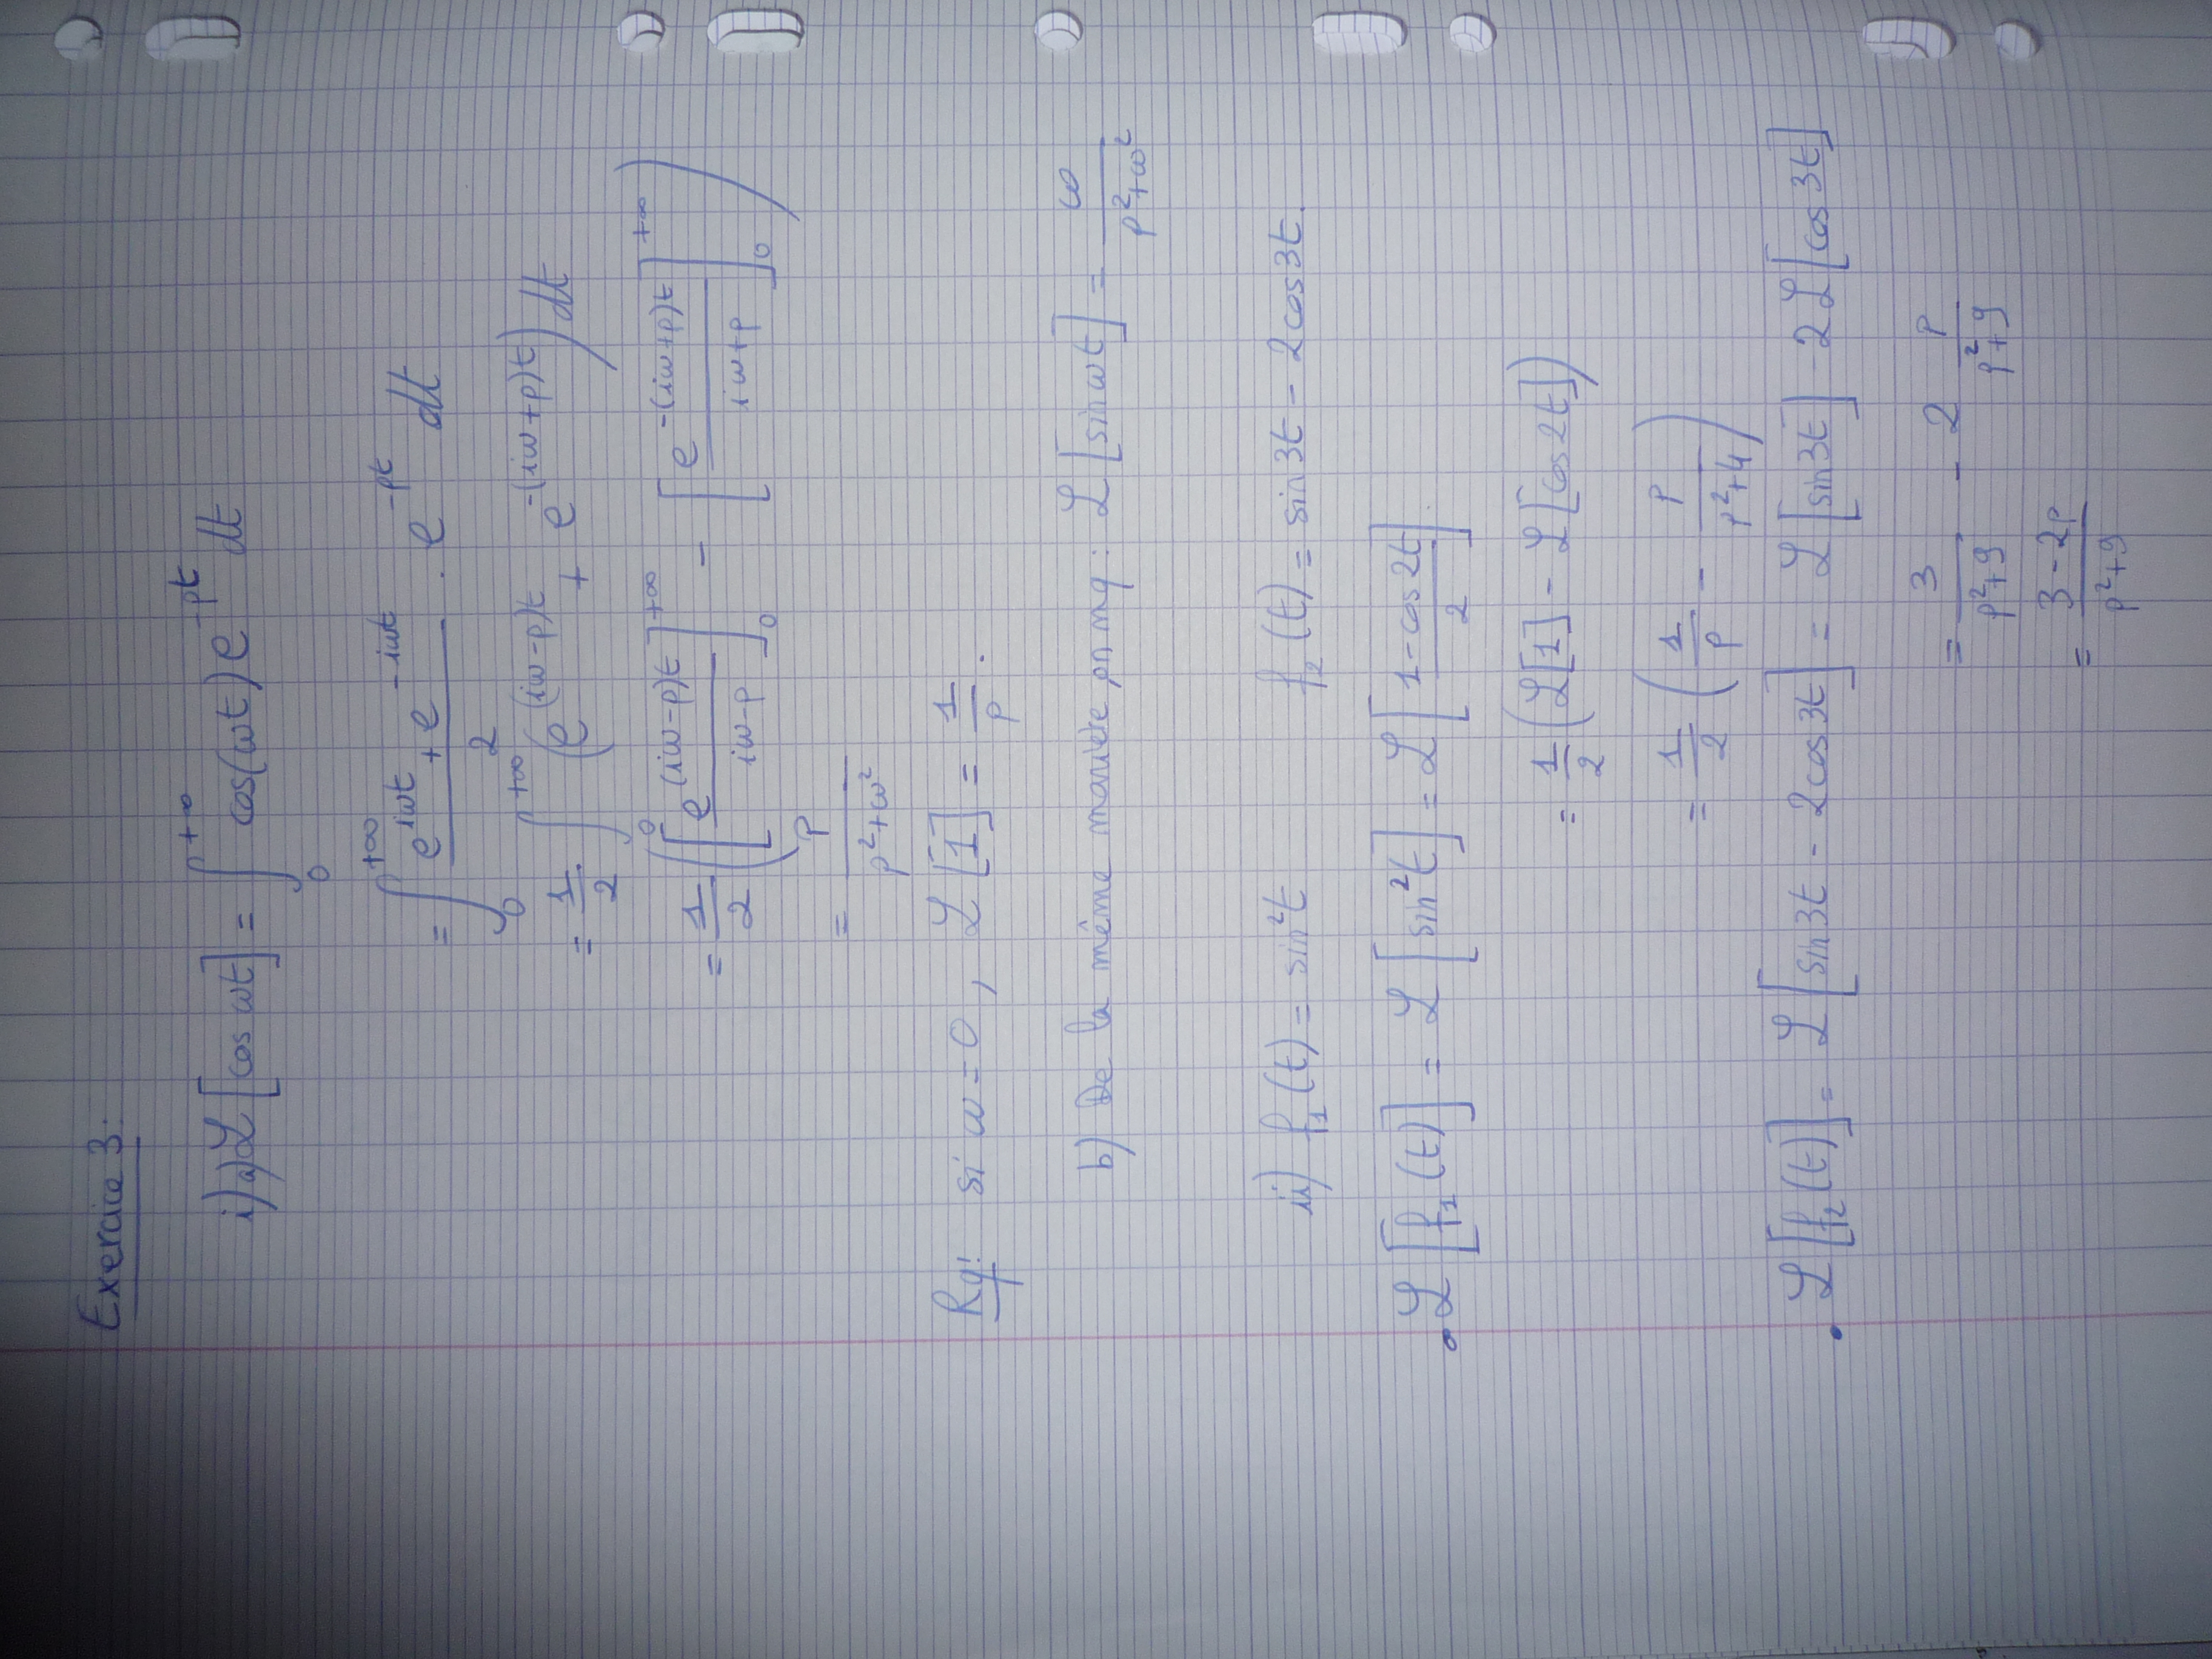 Exercice 3:
i) a) ℒ[cos ωt] = ∫₀^{+∞} cos(ωt) e^{-pt} dt
= ∫₀^{+∞} (e^{iωt} + e^{-iωt})/2 . e^{-pt} dt
= 1/2 ∫₀^{+∞} (e^{(iω-p)t} + e^{-(iω+p)t}) dt
= 1/2 ([e^{(iω-p)t}/(iω-p)]₀^{+∞} - [e^{-(iω+p)t}/(iω+p)]₀^{+∞})
= p/(p²+ω²)
Rq: si ω=0, ℒ[1] = 1/p.
b) De la même manière, on mq: ℒ[sin ωt] = ω/(p²+ω²)
ii) f₁(t) = sin²t f₂(t) = sin3t - 2cos3t.
• ℒ[f₁(t)] = ℒ[sin²t] = ℒ[(1-cos2t)/2]
= 1/2 (ℒ[1] - ℒ[cos2t])
= 1/2 (1/p - p/(p²+4))
• ℒ[f₂(t)] = ℒ[sin3t - 2cos3t] = ℒ[sin3t] - 2ℒ[cos3t]
= 3/(p²+9) - 2 p/(p²+9)
= (3-2p)/(p²+9)